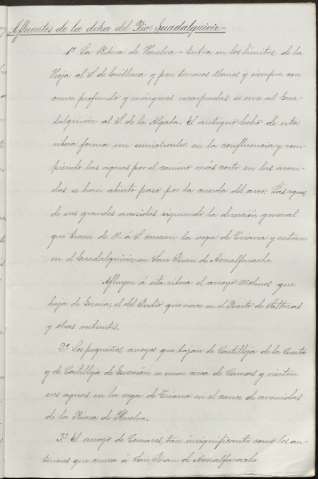 Afluentes de la dcha del Rio Guadalquivir.-
1º La Ribera de Huelva - Entra en los limites de la
Hoja al S. de Guillena y por terrenos llanos y siempre con
cauce profundo y márgenes escarpadas se une al Gua-
dalquivir al S. de la Algaba. El antiguo lecho de esta
ribera forma un semicirculo en la confluencia y rom-
piendo las aguas por el camino mas corto en las aveni-
das se han abierto paso por la cuerda del arco. Las aguas
de sus grandes avenidas siguiendo la direccion general
que traen de N. á S. cruzan la vega de Triana y entran
en el Guadalquivir en San Juan de Aznalfarache
Afluyen á esta ribera el arroyo Molinos que
baja de Gerena, el del que nace en el de
y otros
2º Los pequeños arroyos que bajan de Castilleja de la Cuesta
y de Castilleja de Guzmán se unen cerca de Camas y vierten
sus aguas en la vega de Triana en el cauce de avenidas
de la Rivera de Huelva.
3º El arroyo de Tomares, tan insignificante como los an-
teriores que cruza á San Juan de Aznalfarache